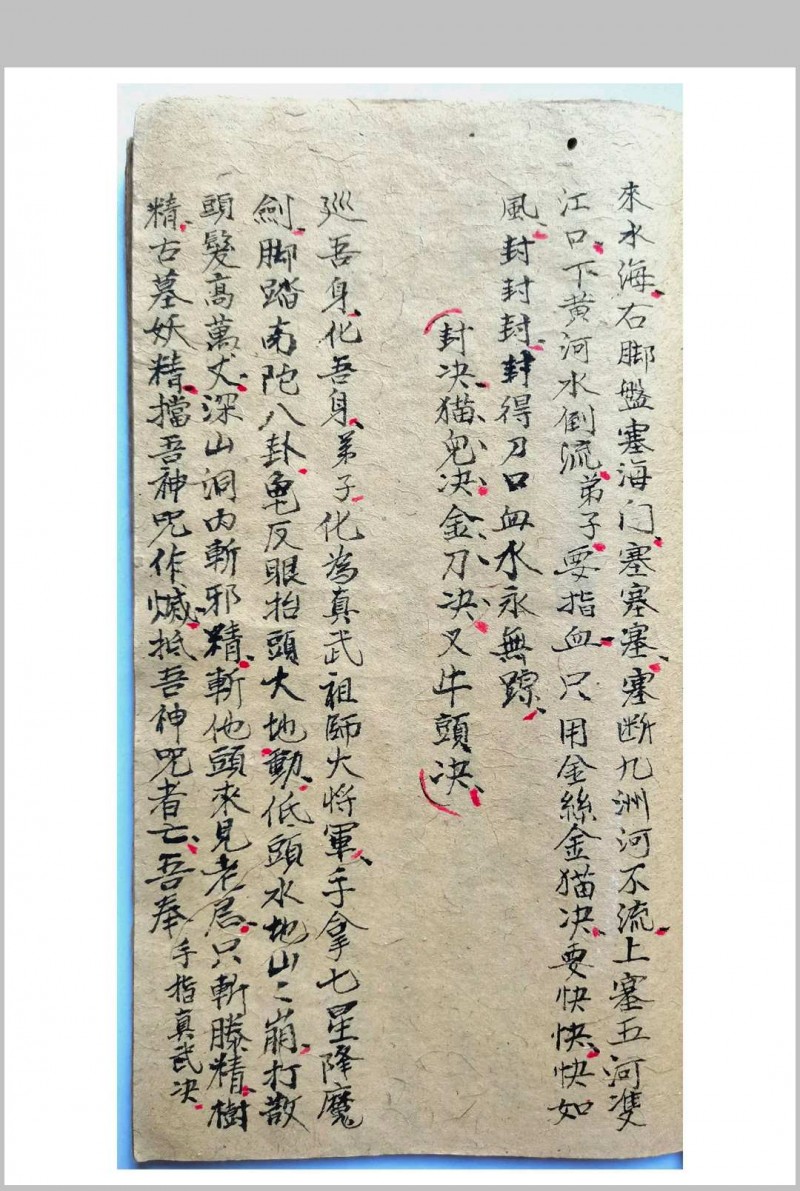 來水海右脚盤塞海门塞塞塞塞断九洲河不流上塞五河雙
江口下黄河水倒流弟子要指血只用金絲金猫决要快快快如
風封封封封得刀口血水永無踪
封决猫鬼决金刀决又牛頭决
巡吾身化吾身弟子化為真武祖師大将軍手拿七星降魔
劍脚踏南陀八卦龟反眼抬頭大地動低頭水地山〻崩打散
頭髮高萬丈深山洞内斬邪精斬他頭來見老君只斬藤精樹
精古墓妖精擋吾神咒作滅抵吾神咒者亡吾奉手指真武决